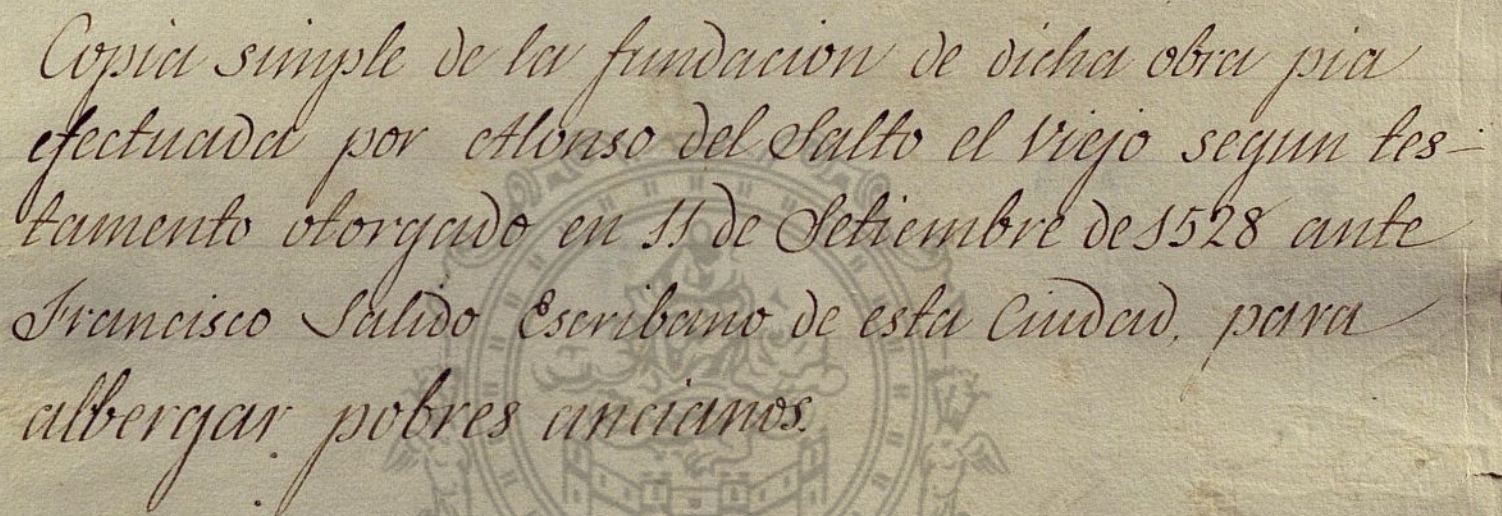 Copia simple de la fundacion de dicha obra pia
efectuada por Alonso del Salto el Viejo segun tes-
tamento otorgado en 11 de Setiembre de 1528 ante
Francisco Salido Escribano de esta Ciudad, para
albergar pobres ancianos.